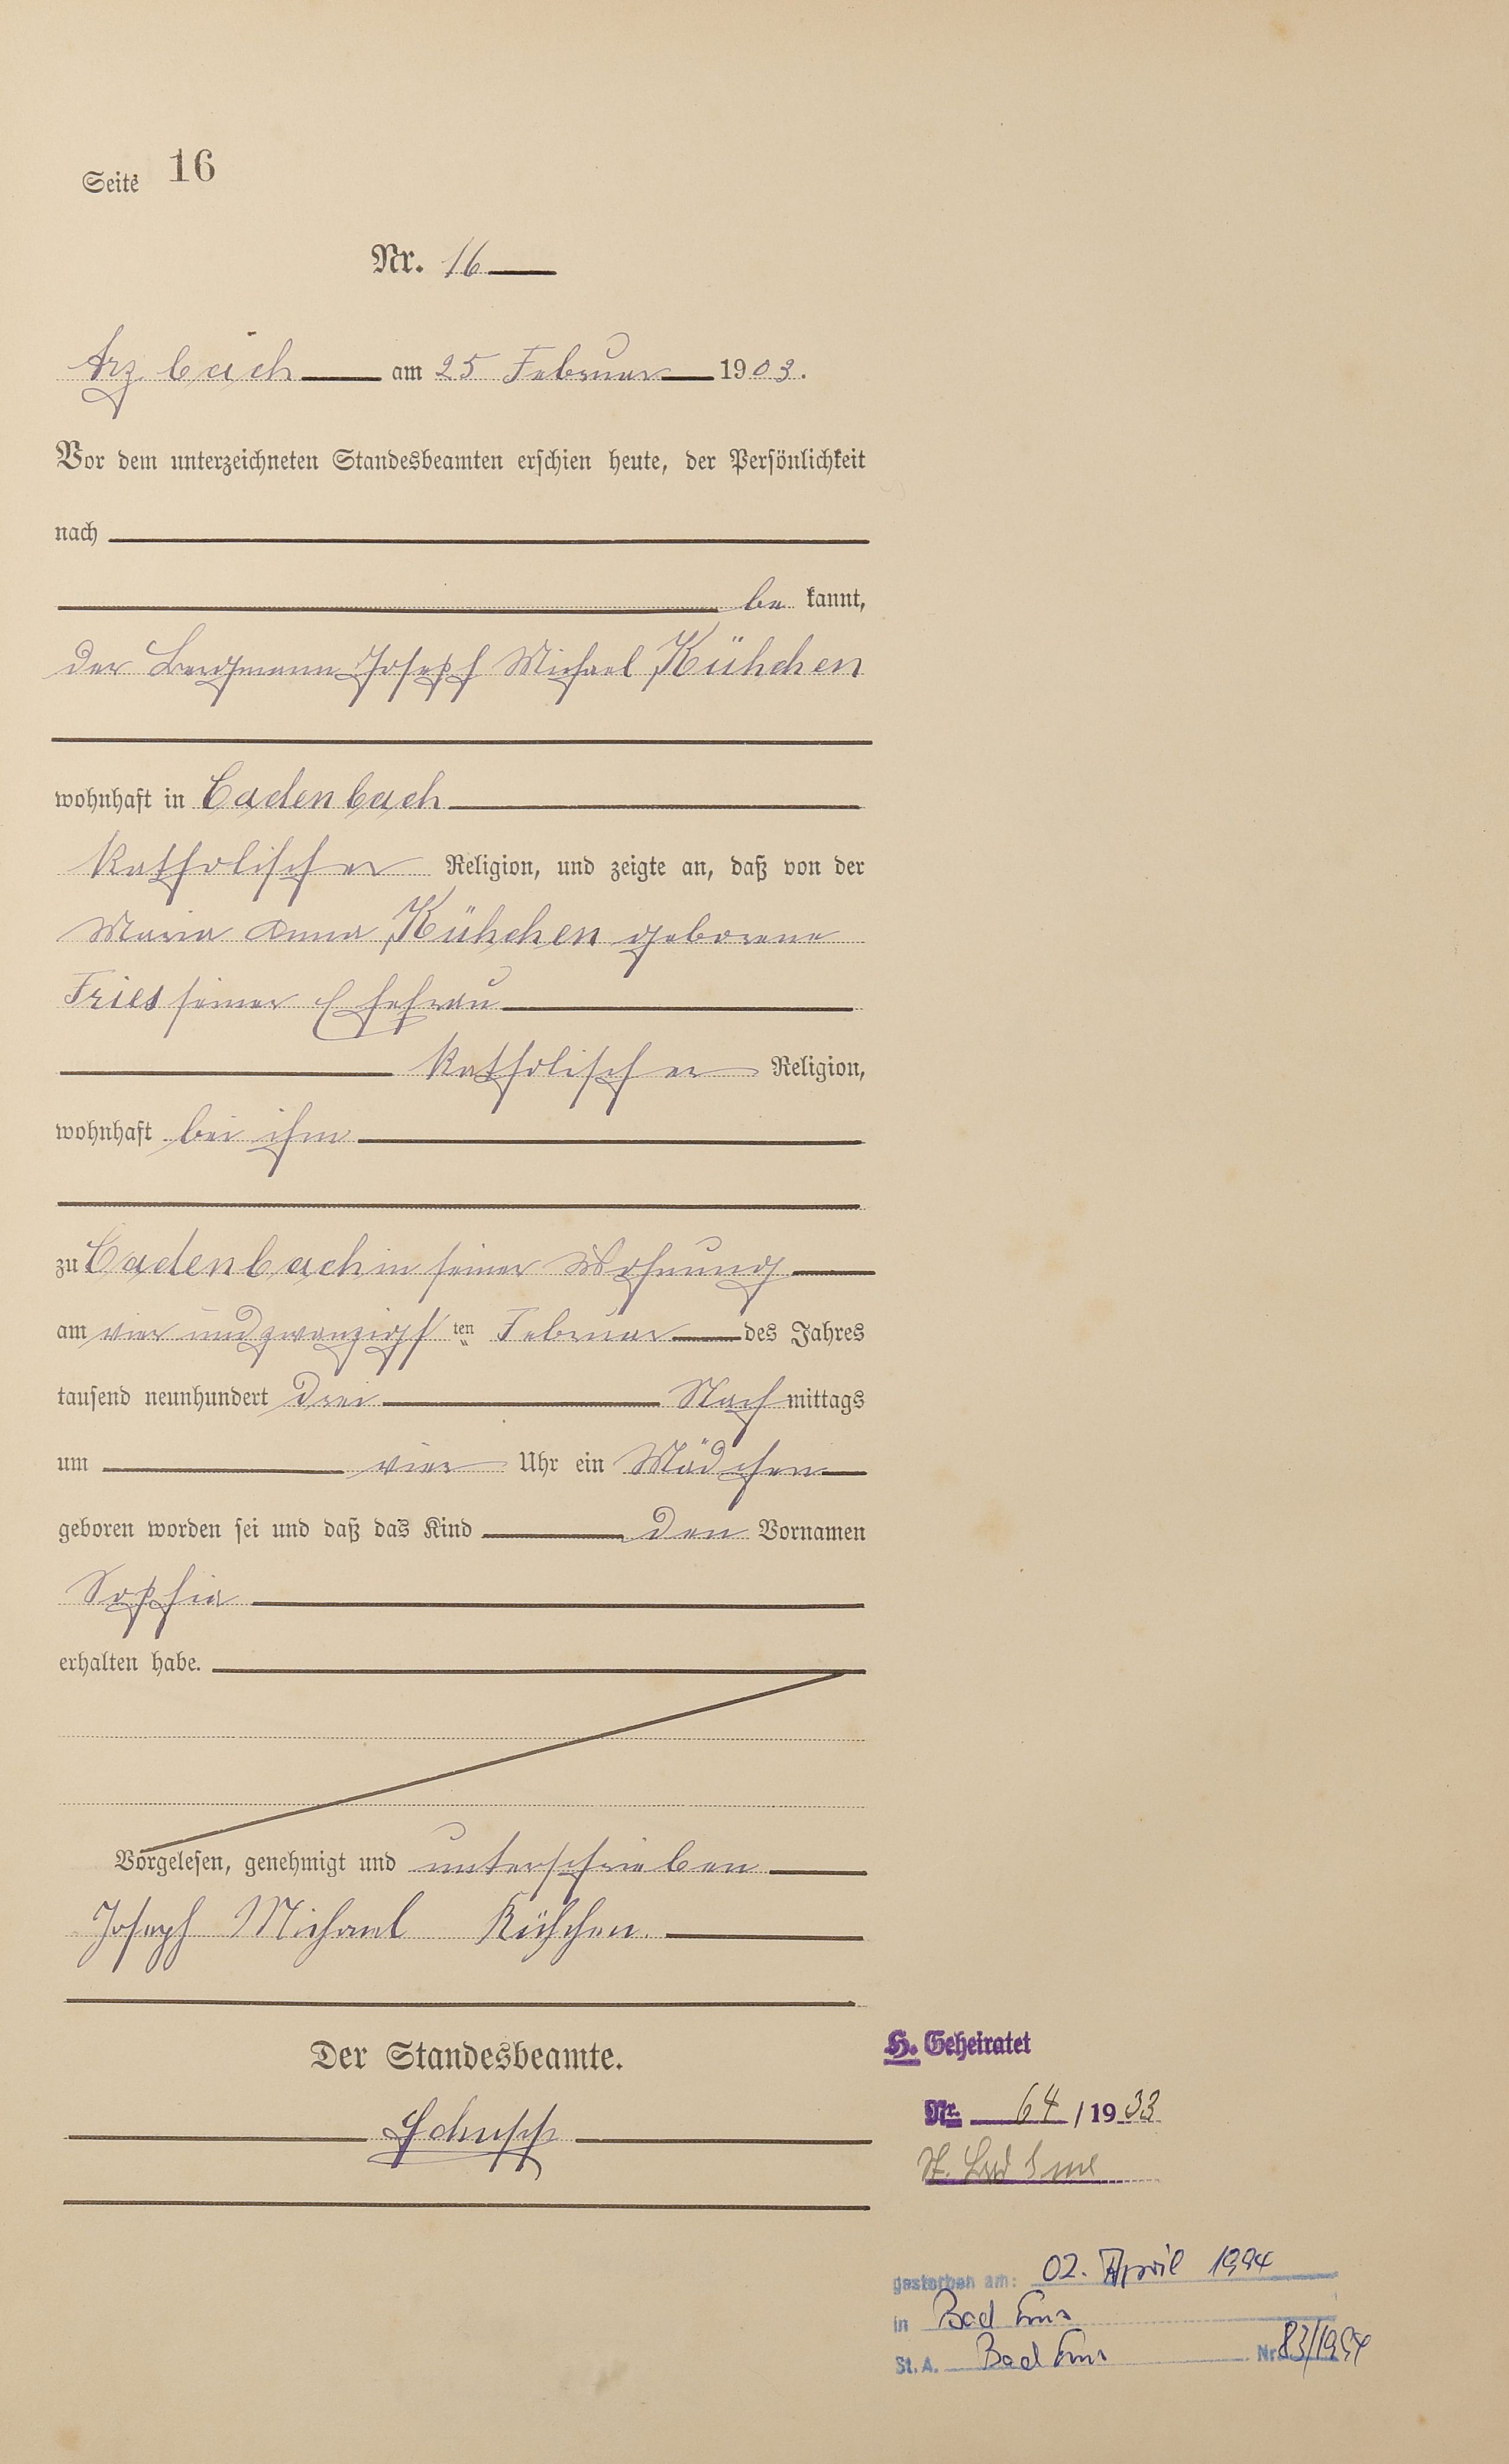 Seite 16
Nr. 16
Arzbach am 25 Februar 1903.
Vor dem unterzeichneten Standesbeamten erschien heute, der Persönlichkeit
nach
be kannt,
der Bergmann Joseph Michael Kühchen
wohnhaft in Cadenbach
katholischer Religion, und zeigte an, daß von der
Maria Anna Kühchen geborene
Fries seiner Ehefrau
katholischer Religion,
wohnhaft bei ihm
zu Cadenbach in seiner Wohnung
am vier und zwanzigs ten Februar des Jahres
tausend neunhundert drei Nach mittags
um vier Uhr ein Mädchen
geboren worden sei und daß das Kind den Vornamen
Sophia
erhalten habe.
Vorgelesen, genehmigt und unterschrieben
Joseph Michael Kühchen.
Der Standesbeamte.
Schupp
H. Geheiratet
Nr. 64 / 1933
St. Bad Ems
gestorben am: 02. April 1994
in Bad Ems
St. A. Bad Ems Nr. 83/1994